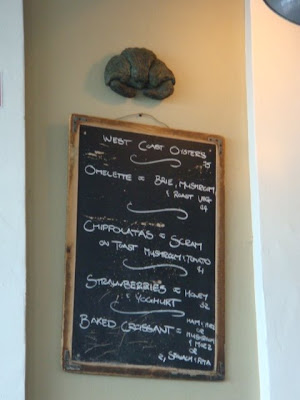 WEST COAST OYSTERS
OMELETTE = BRIE, MUSHROOM,
& ROAST VEG
CHIPPOLATAS = SCRAM
ON TOAST MUSHROOM & TOMATO
STRAWBERRIES = HONEY
& YOGHURT
BAKED CROISSANT =
OR
MUSHROOM
& MOZZ
OR
SPINACH & FETA